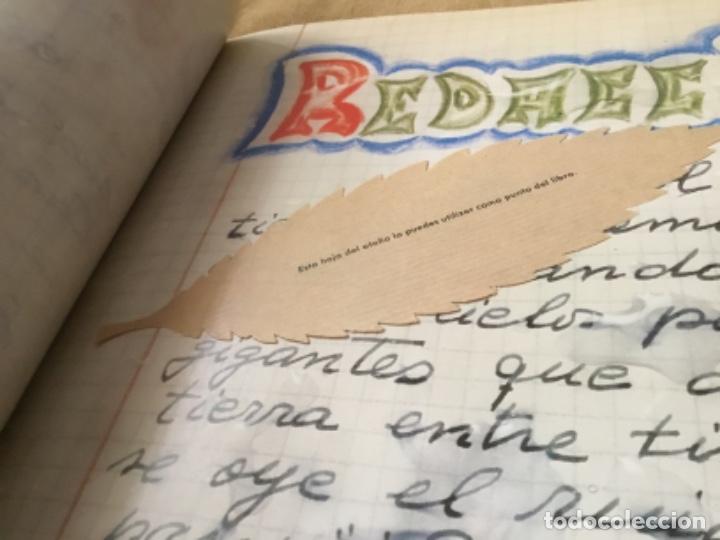 REDACC
Esta hoja del otoño la puedes utilizar como punto del libro.
e
ti
ando
gigantes que
tierra entre ti
se oye el rui
todocoleccion
todocoleccion.net